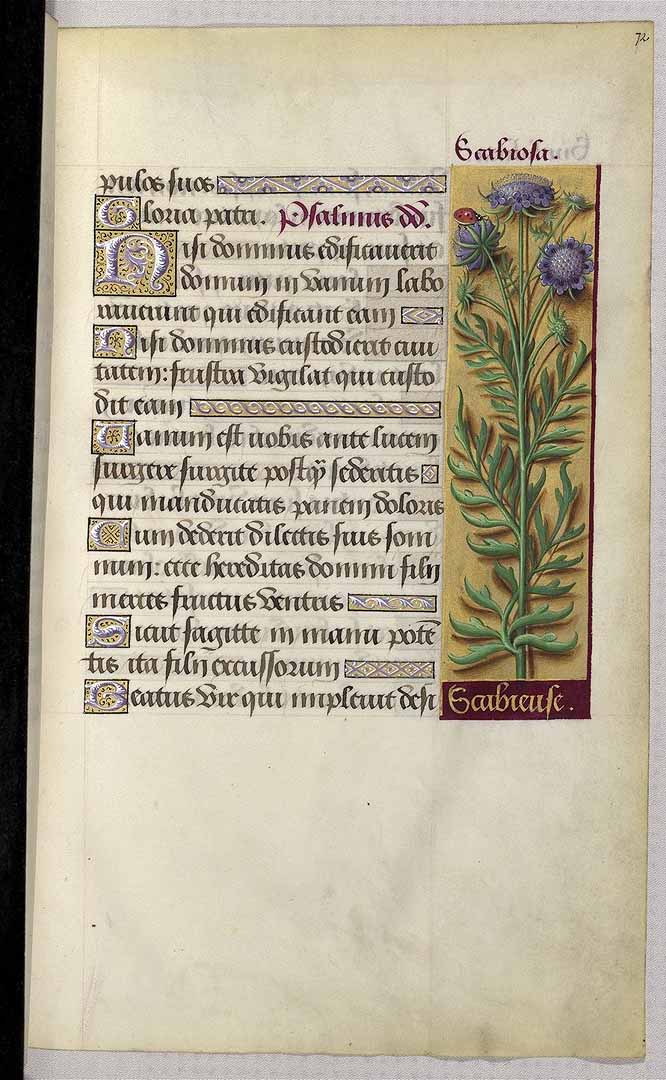 72
Scabiosa.
pulos suos
Gloria patri. Psalmus dd.
Nisi dominus edificauerit
domum in vanum labo
rauerunt qui edificant eam
Nisi dominus custodierit ciui
tatem: frustra vigilat qui custo
dit eam
Uanum est uobis ante lucem
surgere surgite postq̃ sederitis
qui manducatis panem doloris
Cum dederit dilectis suis som
num: ecce hereditas domini filij
merces fructus ventris
Sicut sagitte in manu potẽ
tis ita filij excussorum
Beatus vir qui impleuit desi
Scabieuse.